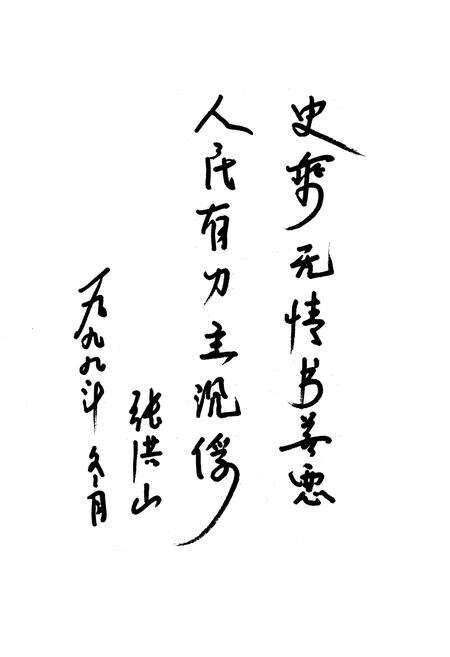 史无情书善恶
人民有力主沉浮
张洪山
一九九九年冬月